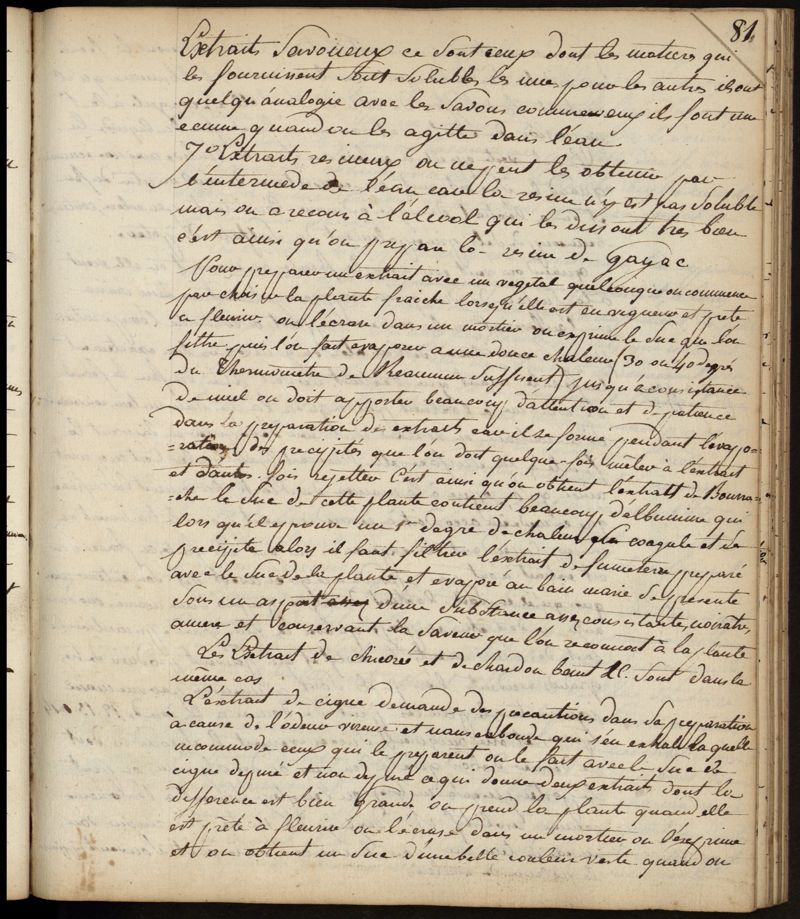 81
Extraits Savoneux ce sont ceux dont les matieres qui
les fournissent sont solubles les unes pour les autres ils ont
quelqu'analogie avec les Savons comme eux ils font une
ecume quand on les agitte dans l'eau
7o Extraits resineux on ne peut les obtenir par
l'intermede de l'eau car la resine n'y est pas soluble
mais on a recours à l'alcool qui les dissout tres bien
c'est ainsi qu'on prepare la resine de gayac
Pour preparer un extrait avec un vegetal quelconque on commence
par choisir la plante fraiche lorsqu'elle est en vigueur et prete
a fleurir on l'écrase dans un mortier on exprime le Suc que l'on
filtre puis l'on fait evaporer a une douce chaleur (30 ou 40 degrés
du Thermometre de Reaumur suffisent) jusqu'a consistance
de miel on doit apporter beaucoup d'attention et de patience
dans la preparation des extraits car il se forme pendant l'evapo=
=ration des precipités que l'on doit quelque-fois mêler à l'extrait
et d'autres fois rejetter C'est ainsi qu'on obtient l'extrait de Bourra=
=che le Suc de cette plante contient beaucoup d'albumine qui
lors qu'il eprouve un 1er degre de chaleur se coagule et se
precipite alors il faut filtrer l'extrait de fumeterre preparé
avec le Suc de la plante et evaporé au bain marie se presente
sous un aspect d'une substance assez consistante, noiratre,
amere et conservant la Saveur que l'on reconnoit à la plante
Les Extrait de chicorée et de chardon benit &c. sont dans le
même cas
L'extrait de cigue demande des precautions dans sa preparation
à cause de l'odeur vireuse et nauseabonde qui s'en exhale laquelle
incommode ceux qui le preparent on le fait avec le Suc de
cigue depuré et non depuré ce qui donne deux extraits dont la
difference est bien grande on prend la plante quand elle
est prete à fleurir on l'écrase dans un mortier on l'exprime
et on obtient un Suc d'une belle couleur verte quand on